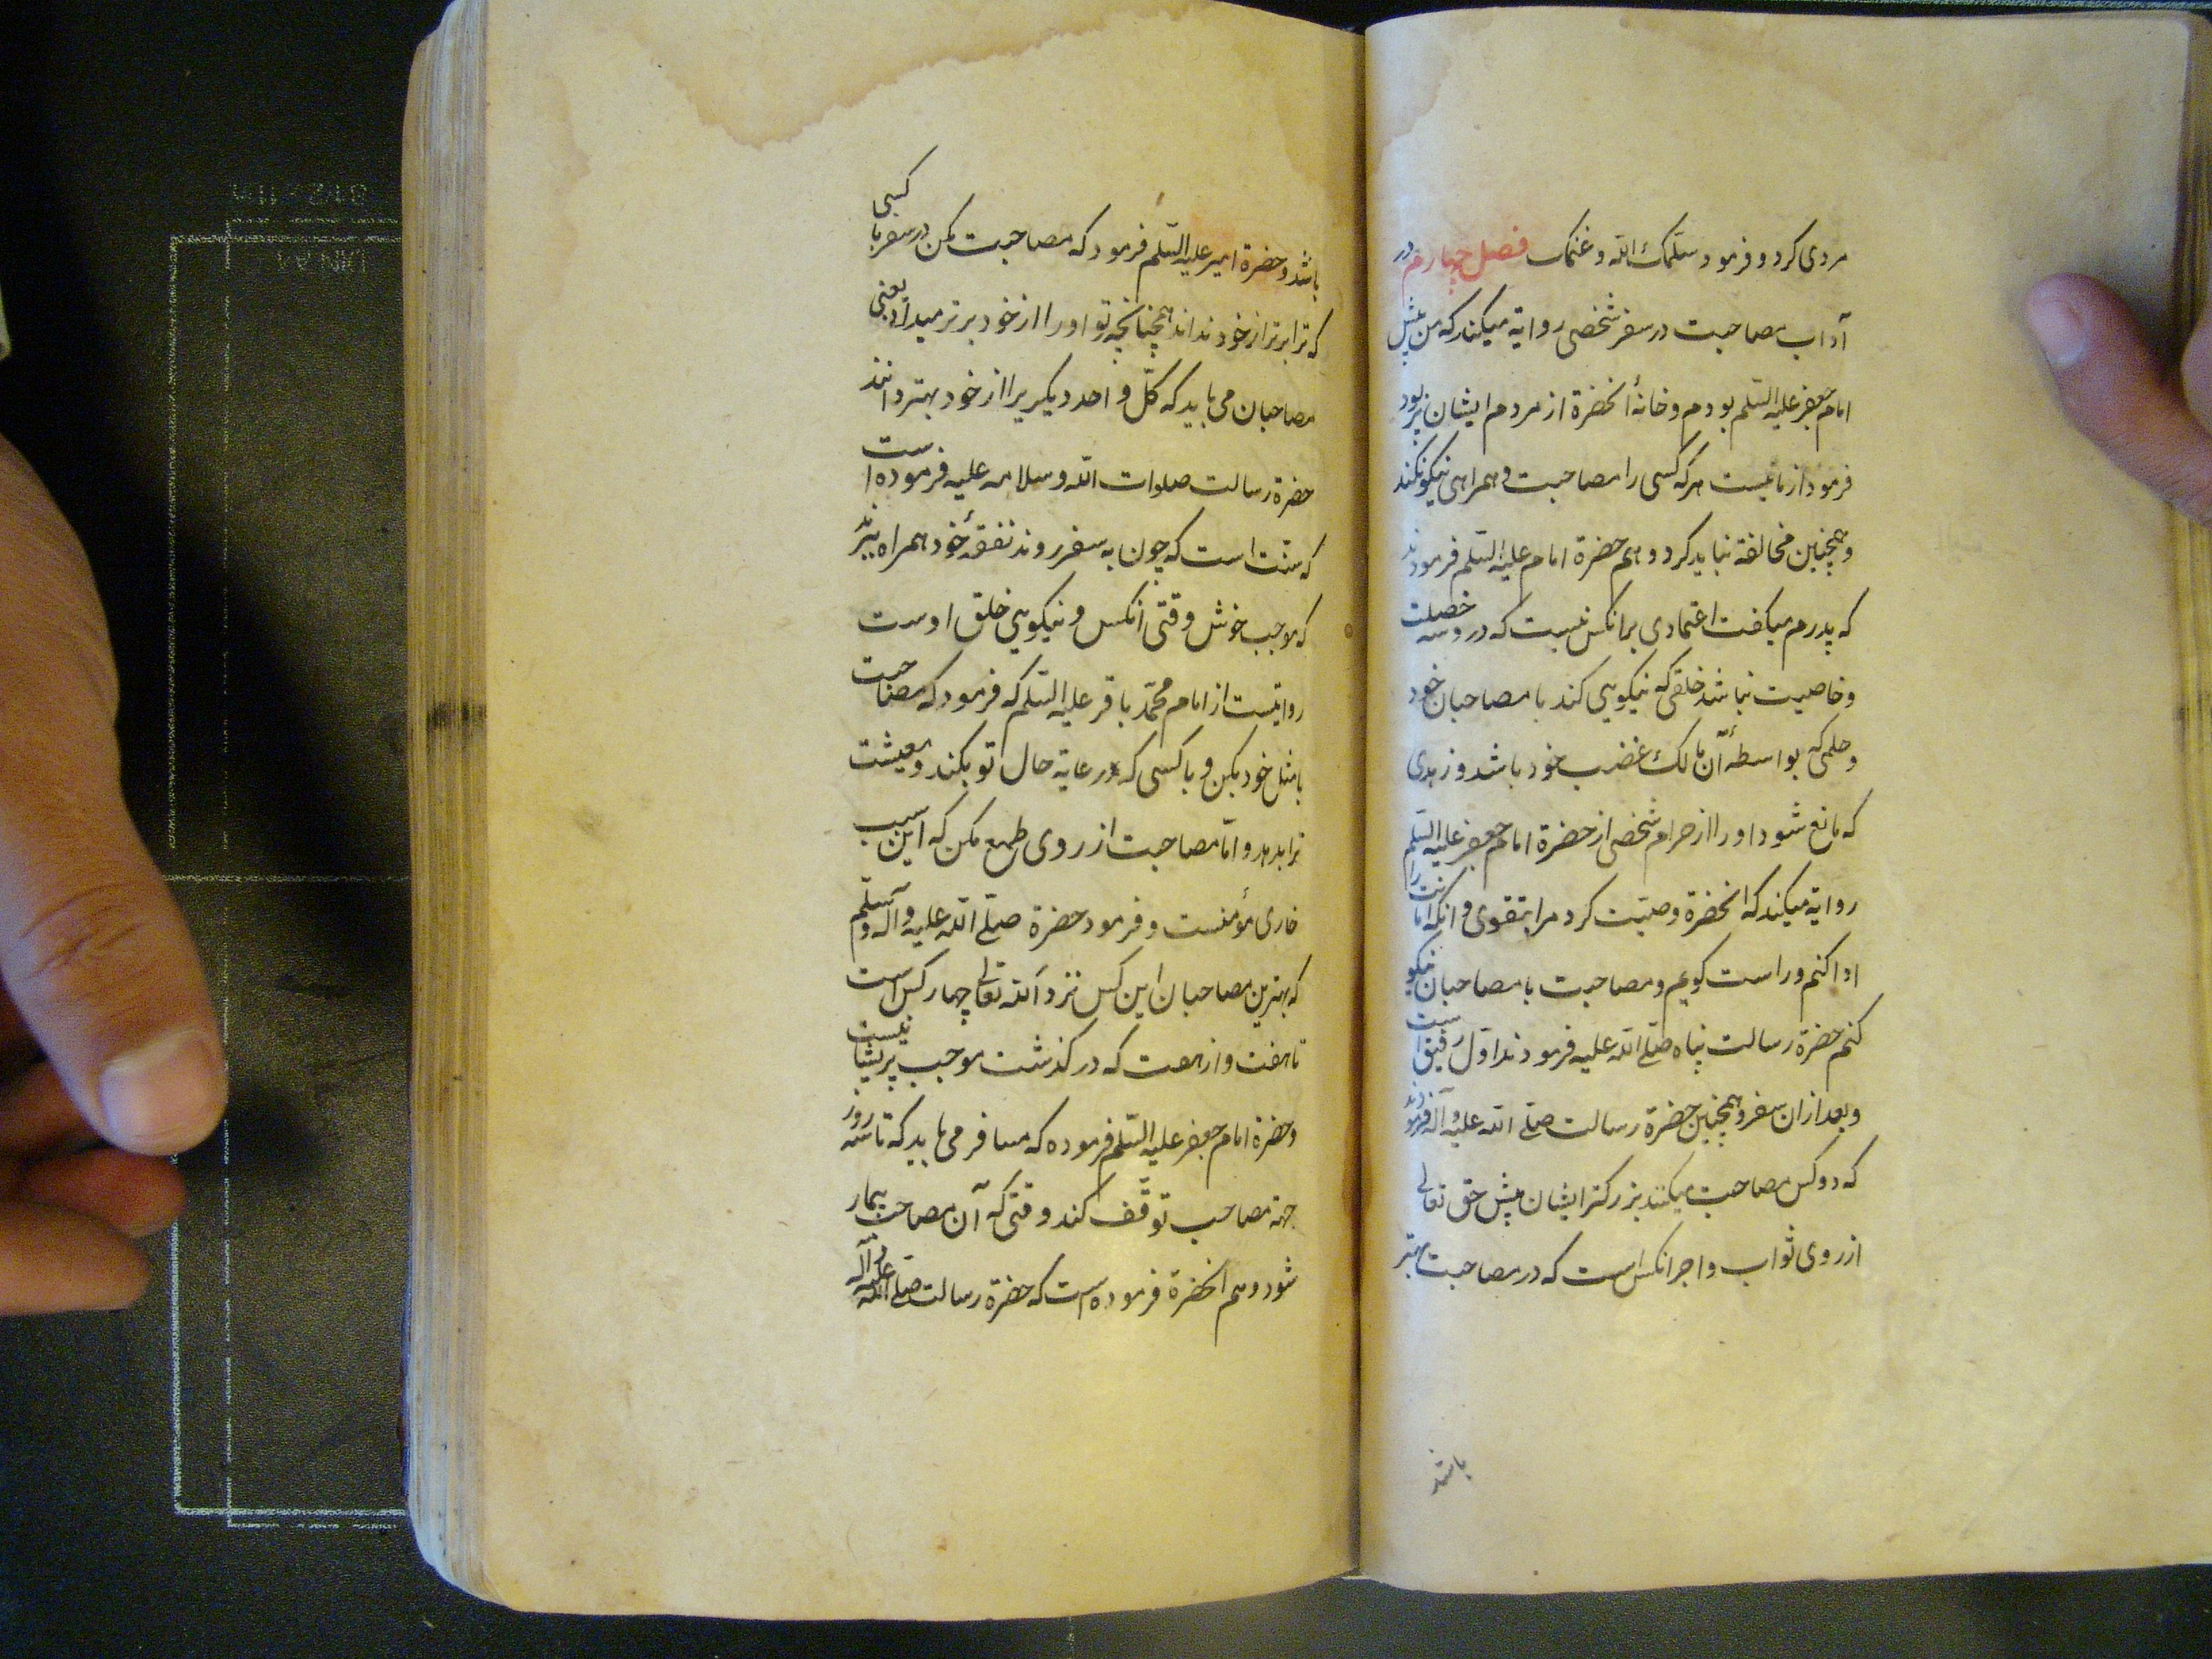 مردی کرد و فرمود سلمک الله و غنمک فصل چهارم در
آداب مصاحبت در سفر شخصی روایة میکند که من پیش
امام جعفر علیه السلم بودم و خانهٔ انحضرة از مردم ایشان پر بود
فرمود از ما نیست هر که کسی را مصاحبت و همراهی نیکو نکند
و همچنین مخالفة نباید کرد و هم حضرة امام علیه السلم فرمودند
که پدرم میکفت اعتمادی بر انکس نیست که درو سه خصلت
و خاصیت نباشد خلقی که نیکویی کند با مصاحبان خود
و حلمی که بواسطهٔ آن مالک غضب خود باشد و زهدی
که مانع شود او را از حرام شخصی از حضرة امام جعفر علیه السلم
روایة میکند که انحضرة وصیت کرد مرا بتقوی و انکه امانت را
ادا کنم و راست کویم و مصاحبت با مصاحبان نیکو
کنم حضرة رسالت پناه صلی الله علیه فرمودند اول رفیق است
و بعد از ان سفر و همچنین حضرة رسالت صلی الله علیه و آله فرمودند
که دو کس مصاحبت میکنند بزرکتر ایشان پیش حق تعالی
از روی ثواب و اجر انکس است که در مصاحبت بهتر
باشد
باشد و حضرة امیر علیه السلم فرمود که مصاحبت مکن در سفر با کسی
که ترا برتر از خود نداند همچنانچه تو او را از خود برتر میدانی یعنی
مصاحبان می باید که کل واحد دیکریرا از خود بهتر دانند
حضرة رسالت صلوات الله و سلامه علیه فرموده است
که سنت است که چون به سفر روند نفقهٔ خود همراه ببرند
که موجب خوش وقتی انکس و نیکویی خلق اوست
روایتست از امام محمد باقر علیه السلم که فرمود که مصاحبت
با مثل خود بکن و با کسی که رعایة حال تو بکند و معیشت
ترا بدهد و اما مصاحبت از روی طمع مکن که این سبب
خاری مؤمنست و فرمود حضرة صلی الله علیه و آله و سلم
که بهترین مصاحبان این کس نزد الله تعالی چهار کس است
تا هفت و از هفت که در کذشت موجب پریشانیست
و حضرة امام جعفر علیه السلم فرموده که مسافر می باید که تا سه روز
جهة مصاحب توقف کند وقتی که آن مصاحب بیمار
شود و هم انحضرة فرموده است که حضرة رسالت صلی الله علیه و آله